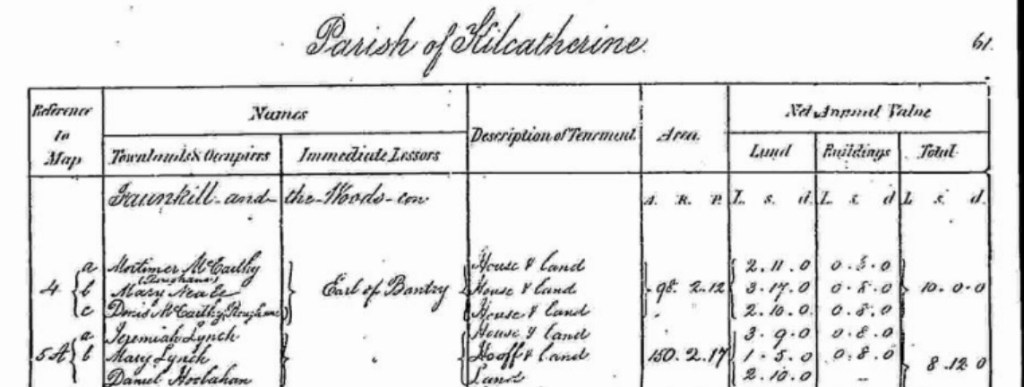 Parish of Kilcatherine.
61.
Reference to Map
Names
Description of Tenement
Area
Net Annual Value
Townlands & Occupiers
Immediate Lessors
Land
Buildings
Total
Faunkill and the Woods con
A. R. P. L. s. d. L. s. d. L. s. d.
4 a Mortimer McCarthy House & land 2.11.0
b Mary Neale Earl of Bantry House & land 98.2.12 3.17.0 0.8.0 10.0.0
c Denis McCarthy House & land 2.10.0 0.8.0
5A a Jeremiah Lynch House & land 3.9.0 0.8.0
b Mary Lynch & land 150.2.17 1.5.0 0.8.0 8.12.0
Daniel Land 2.10.0 —